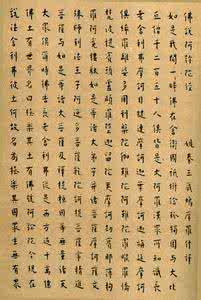 佛說阿彌陀經 姚秦三藏鳩摩羅什譯
如是我聞一時佛在舍衛國祇樹給孤獨園與大比
丘僧千二百五十人俱皆是大阿羅漢眾所知識長
老舍利弗摩訶目犍連摩訶迦葉摩訶迦旃延摩訶
俱絺羅離婆多周利槃陀伽難陀阿難陀羅睺羅憍
梵波提賓頭盧頗羅墮迦留陀夷摩訶劫賓那薄拘
羅阿㝹樓馱如是等諸大弟子并諸菩薩摩訶薩文
殊師利法王子阿逸多菩薩乾陀訶提菩薩常精進
菩薩與如是等諸大菩薩及釋提桓因等無量諸天
大眾俱爾時佛告長老舍利弗從是西方過十萬億佛
土有世界名曰極樂其土有佛號阿彌陀今現在
說法舍利弗彼土何故名為極樂其國眾生無有眾